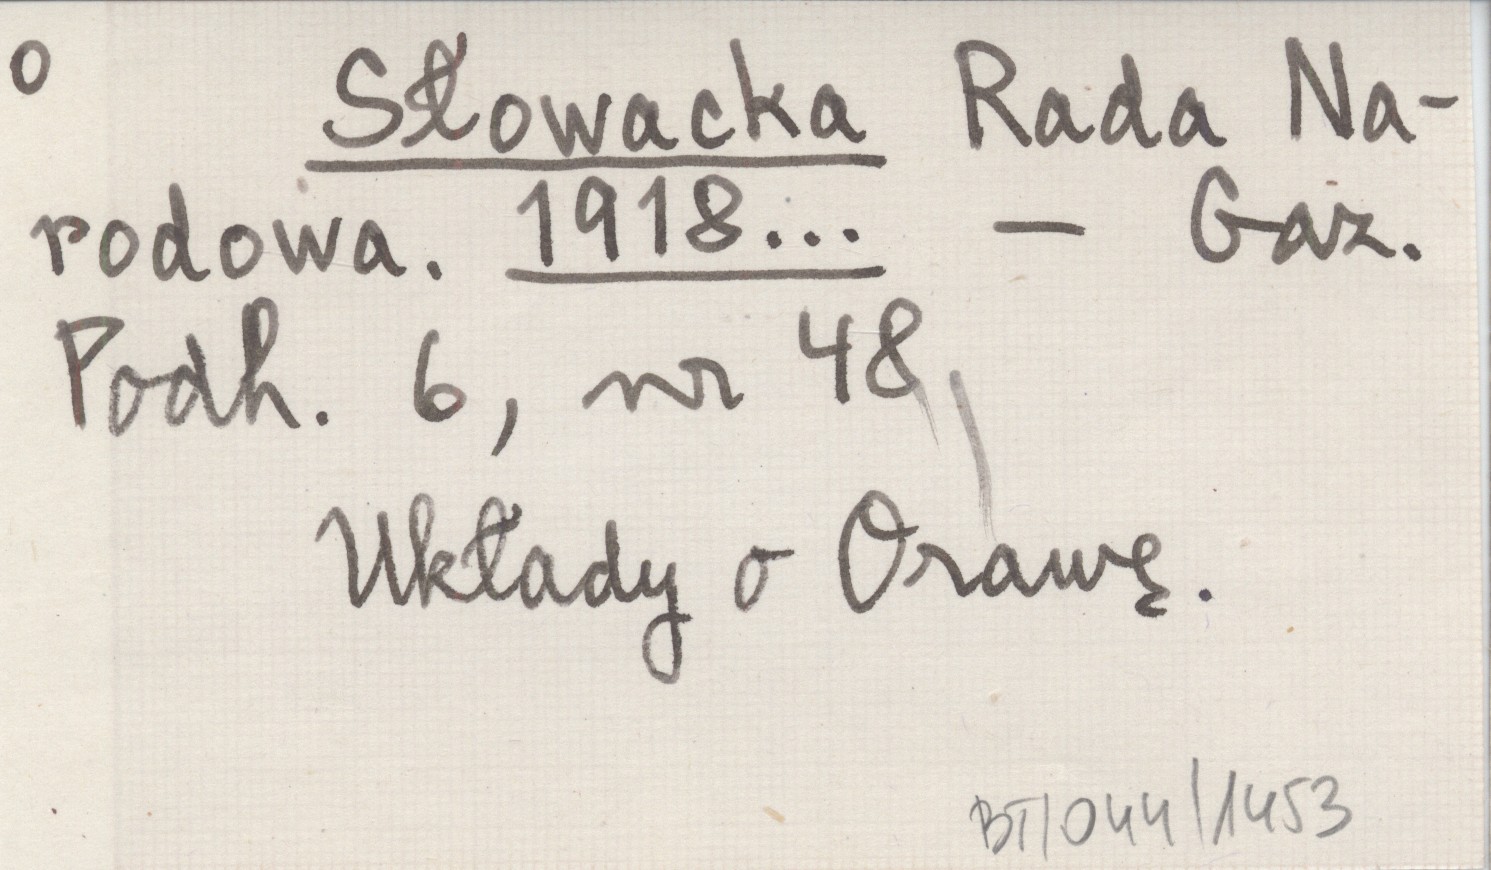 o Słowacka Rada Na-
rodowa. 1918... – Gaz.
Podh. 6, nr 48
Układy o Orawę.
BT/044/1453